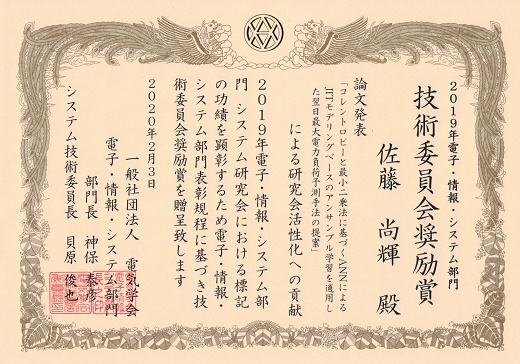 2019年電子・情報・システム部門
技術委員会奨励賞
佐藤　尚輝　殿
論文発表
「コレントロピーと最小二乗法に基づくANNによる
JITモデリングベースのアンサンブル学習を適用し
た翌日最大電力負荷予測手法の提案」
による研究会活性化への貢献
2019年電子・情報・システム部
門　システム研究会における標記
の功績を顕彰するため電子・情報・
システム部門表彰規程に基づき技
術委員会奨励賞を贈呈致します
2020年2月3日
一般社団法人　電気学会
電子・情報・システム部門
部門長　神保　泰彦
システム技術委員長　貝原　俊也